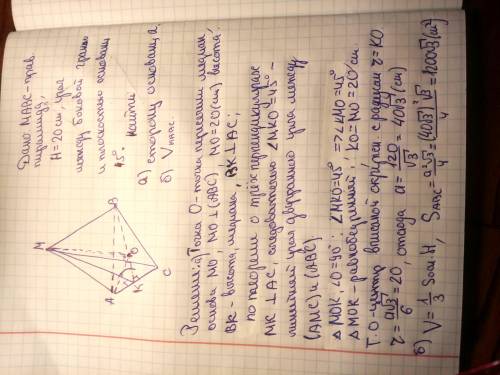 Дано: МАВС - прав.
пирамида,
H = 20 см, угол
между боковой гранью
и плоскостью основания
45°. Найти
а) сторону основания a.
б) Vпир.
М
А
В
С
К
О
Решение: а) Точка О - точка пересечения медиан
основы МО MO ⊥ (ABC), MO = 20 (см) высота.
ВК - высота, медиана, BK ⊥ AC;
по теореме о трёх перпендикулярах
MK ⊥ AC, следовательно ∠MKO = 45° -
линейный угол двугранного угла между
(AMC) и (ABC).
△MOK, ∠O = 90°; ∠MKO = 45° => ∠KMO = 45°
△MOK - равнобедренный, KO = MO = 20 см
Т. О - центр вписаной окружн. с радиусом r = KO.
r = a√3/6 = 20, отсюда a = 120/√3 = 40√3 (см)
б) V = 1/3 Sосн·H, S ABC = a²√3/4 = (40√3)²√3/4 = 1200√3 (см²)